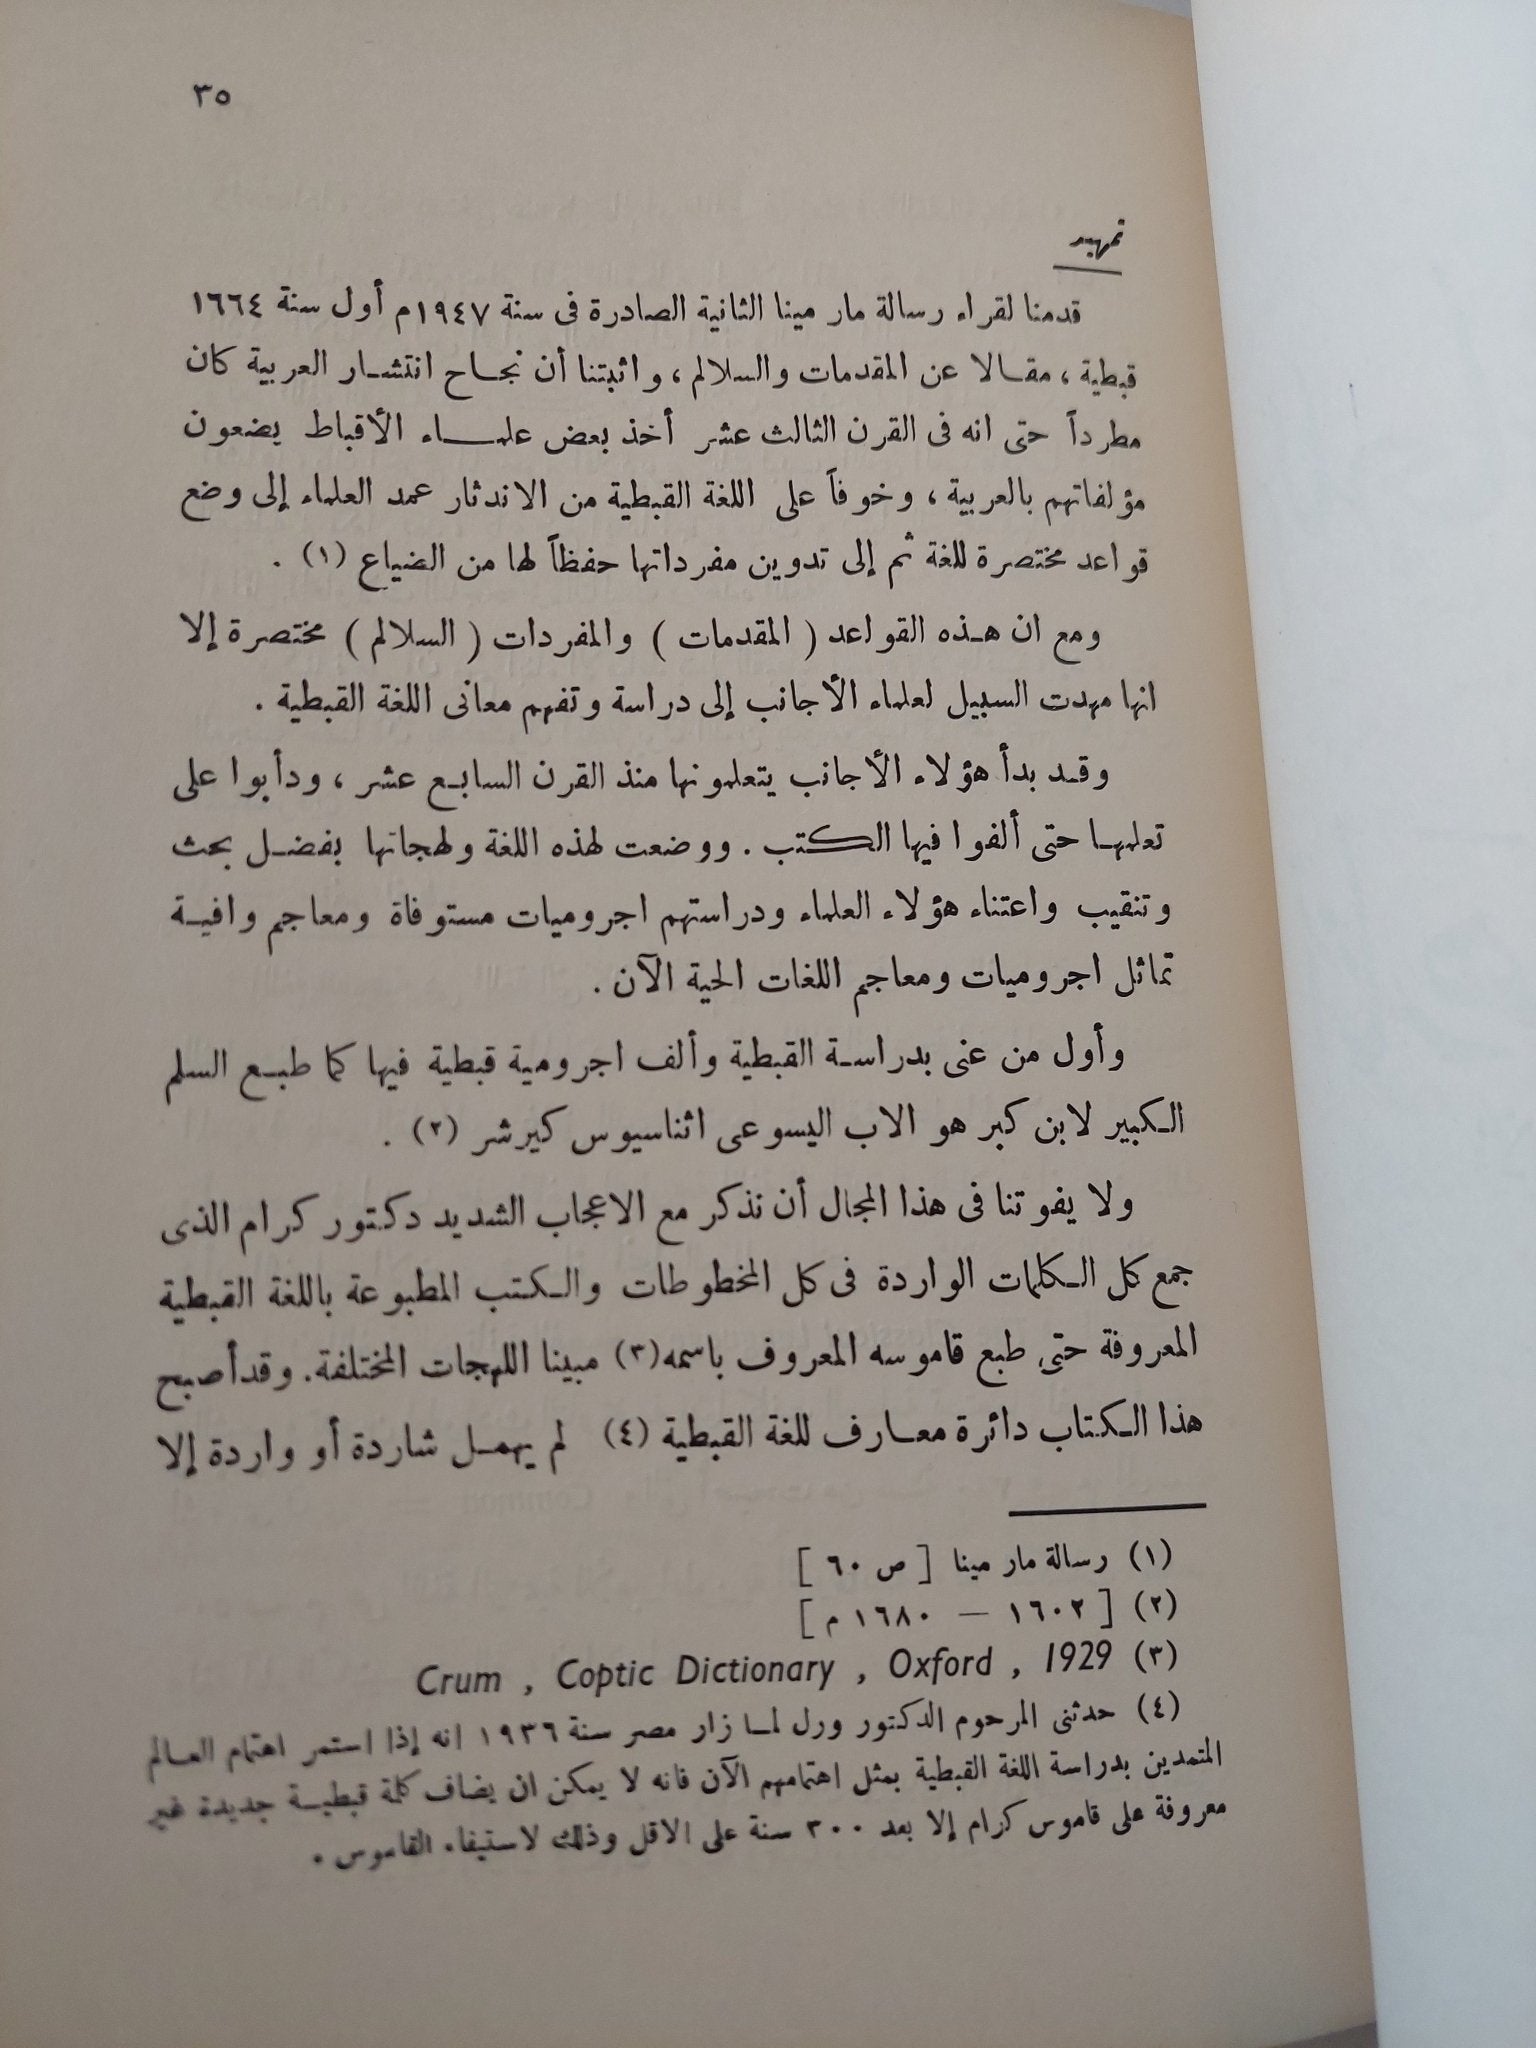 ٣٥
تمهيد
قدمنا لقراء رسالة مار مينا الثانية الصادرة فى سنة ١٩٤٧م أول سنة ١٦٦٤
قبطية ، مقالا عن المقدمات والسلالم ، واثبتنا أن نجاح انتشار العربية كان
مطرداً حتى انه فى القرن الثالث عشر أخذ بعض علماء الأقباط يضعون
مؤلفاتهم بالعربية ، وخوفاً على اللغة القبطية من الاندثار عمد العلماء إلى وضع
قواعد مختصرة للغة ثم إلى تدوين مفرداتها حفظاً لها من الضياع (١) .
ومع ان هذه القواعد ( المقدمات ) والمفردات ( السلالم ) مختصرة إلا
انها مهدت السبيل لعلماء الأجانب إلى دراسة وتفهم معانى اللغة القبطية .
وقد بدأ هؤلاء الأجانب يتعلمونها منذ القرن السابع عشر ، ودأبوا على
تعلمها حتى ألفوا فيها الكتب . ووضعت لهذه اللغة ولهجاتها بفضل بحث
وتنقيب واعتناء هؤلاء العلماء ودراستهم اجروميات مستوفاة ومعاجم وافية
تماثل اجروميات ومعاجم اللغات الحية الآن .
وأول من عنى بدراسة القبطية وألف اجرومية قبطية فيها كما طبع السلم
الكبير لابن كبر هو الاب اليسوعى اثناسيوس كيرشر (٢) .
ولا يفوتنا فى هذا المجال أن نذكر مع الاعجاب الشديد دكتور كرام الذى
جمع كل الكلمات الواردة فى كل المخطوطات والكتب المطبوعة باللغة القبطية
المعروفة حتى طبع قاموسه المعروف باسمه(٣) مبينا اللهجات المختلفة. وقد أصبح
هذا الكتاب دائرة معارف للغة القبطية (٤) لم يهمل شاردة أو واردة إلا
(١) رسالة مار مينا [ ص ٦٠ ]
(٢) [ ١٦٠٢ — ١٦٨٠ م ]
(٣) Crum , Coptic Dictionary , Oxford , 1929
(٤) حدثنى المرحوم الدكتور ورل لما زار مصر سنة ١٩٣٦ انه إذا استمر اهتمام العالم
المتمدين بدراسة اللغة القبطية بمثل اهتمامهم الآن فانه لا يمكن ان يضاف كلمة قبطية جديدة غير
معروفة على قاموس كرام إلا بعد ٣٠٠ سنة على الاقل وذلك لاستيفاء القاموس .